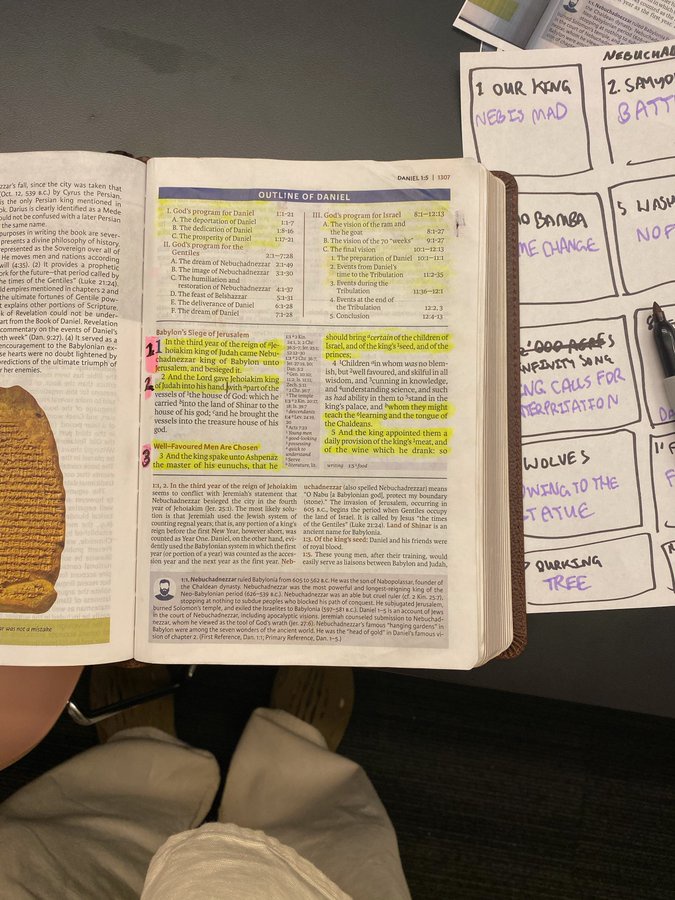 zzar's fall, since the city was taken that
(Oct. 12, 539 B.C.) by Cyrus the Persian,
is the only Persian king mentioned in
ok. Darius is clearly identified as a Mede
ould not be confused with a later Persian
the same name.
purposes in writing the book are sever-
presents a divine philosophy of history.
represented as the Sovereign over all of
He moves men and nations according
will (4:35). (2) It provides a prophetic
ork for the future—that period called by
the times of the Gentiles" (Luke 21:24).
ld empires mentioned in chapters 2 and
the ultimate fortunes of Gentile pow-
t explains other portions of Scripture.
k of Revelation could not be under-
art from the Book of Daniel. Revelation
commentary on the events of Daniel's
eth week" (Dan. 9:27). (4) It served as a
encouragement to the Babylonian ex-
se hearts were no doubt lightened by
redictions of the ultimate triumph of
r her enemies.
ar was not a mistake
DANIEL 1:5 | 1307
OUTLINE OF DANIEL
I. God's program for Daniel 1:1-21
A. The deportation of Daniel 1:1-7
B. The dedication of Daniel 1:8-16
C. The prosperity of Daniel 1:17-21
II. God's program for the
Gentiles 2:1—7:28
A. The dream of Nebuchadnezzar 2:1-49
B. The image of Nebuchadnezzar 3:1-30
C. The humiliation and
restoration of Nebuchadnezzar 4:1-37
D. The feast of Belshazzar 5:1-31
E. The deliverance of Daniel 6:1-28
F. The dream of Daniel 7:1-28
III. God's program for Israel 8:1—12:13
A. The vision of the ram and
the he goat 8:1-27
B. The vision of the 70 "weeks" 9:1-27
C. The final vision 10:1—12:13
1. The preparation of Daniel 10:1—11:1
2. Events from Daniel's
time to the Tribulation 11:2-35
3. Events during the
Tribulation 11:36—12:1
4. Events at the end of
the Tribulation 12:2, 3
5. Conclusion 12:4-13
Babylon's Siege of Jerusalem
1 In the third year of the reign of Je-
hoiakim king of Judah came Nebu-
chadnezzar king of Babylon unto
Jerusalem, and besieged it.
2 And the Lord gave Jehoiakim king
of Judah into his hand, with part of the
vessels of the house of God: which he
carried into the land of Shinar to the
house of his god; and he brought the
vessels into the treasure house of his
god.
Well-Favoured Men Are Chosen
3 And the king spake unto Ashpenaz
the master of his eunuchs, that he
should bring certain of the children of
Israel, and of the king's seed, and of the
princes;
4 Children in whom was no blem-
ish, but well favoured, and skilful in all
wisdom, and cunning in knowledge,
and understanding science, and such
as had ability in them to stand in the
king's palace, and whom they might
teach the learning and the tongue of
the Chaldeans.
5 And the king appointed them a
daily provision of the king's meat, and
of the wine which he drank: so
writing 1:5 food
1:1, 2. In the third year of the reign of Jehoiakim
seems to conflict with Jeremiah's statement that
Nebuchadnezzar besieged the city in the fourth
year of Jehoiakim (Jer. 25:1). The most likely solu-
tion is that Jeremiah used the Jewish system of
counting regnal years; that is, any portion of a king's
reign before the first New Year, however short, was
counted as Year One. Daniel, on the other hand, evi-
dently used the Babylonian system in which the first
year (or portion of a year) was counted as the acces-
sion year and the next year as the first year. Neb-
uchadnezzar (also spelled Nebuchadrezzar) means
"O Nabu [a Babylonian god], protect my boundary
(stone)." The invasion of Jerusalem, occurring in
605 B.C., begins the period when Gentiles occupy
the land of Israel. It is called by Jesus "the times
of the Gentiles" (Luke 21:24). Land of Shinar is an
ancient name for Babylonia.
1:3. Of the king's seed: Daniel and his friends were
of royal blood.
1:5. These young men, after their training, would
easily serve as liaisons between Babylon and Judah,
1:1. Nebuchadnezzar ruled Babylonia from 605 to 562 B.C. He was the son of Nabopolassar, founder of
the Chaldean dynasty. Nebuchadnezzar was the most powerful and longest-reigning king of the
Neo-Babylonian period (626–539 B.C.). Nebuchadnezzar was an able but cruel ruler (cf. 2 Kin. 25:7),
stopping at nothing to subdue peoples who blocked his path of conquest. He subjugated Jerusalem,
burned Solomon's temple, and exiled the Israelites to Babylonia (597–581 B.C.). Daniel 1–5 is an account of Jews
in the court of Nebuchadnezzar, including apocalyptic visions. Jeremiah counseled submission to Nebuchad-
nezzar, whom he viewed as the tool of God's wrath (Jer. 27:6). Nebuchadnezzar's famous "hanging gardens" in
Babylon were among the seven wonders of the ancient world. He was the "head of gold" in Daniel's famous vi-
sion of chapter 2. (First Reference, Dan. 1:1; Primary Reference, Dan. 1–5.)
NEBUCHAD
1 OUR KING
NEB IS MAD
2. SAMYO
BATT
BAMBA
ME CHANGE
5 WASH
NOP
INFINITY SONG
NG CALLS FOR
TERPRITATION
WOLVES
OWING TO THE
TATUE
DURKING
TREE